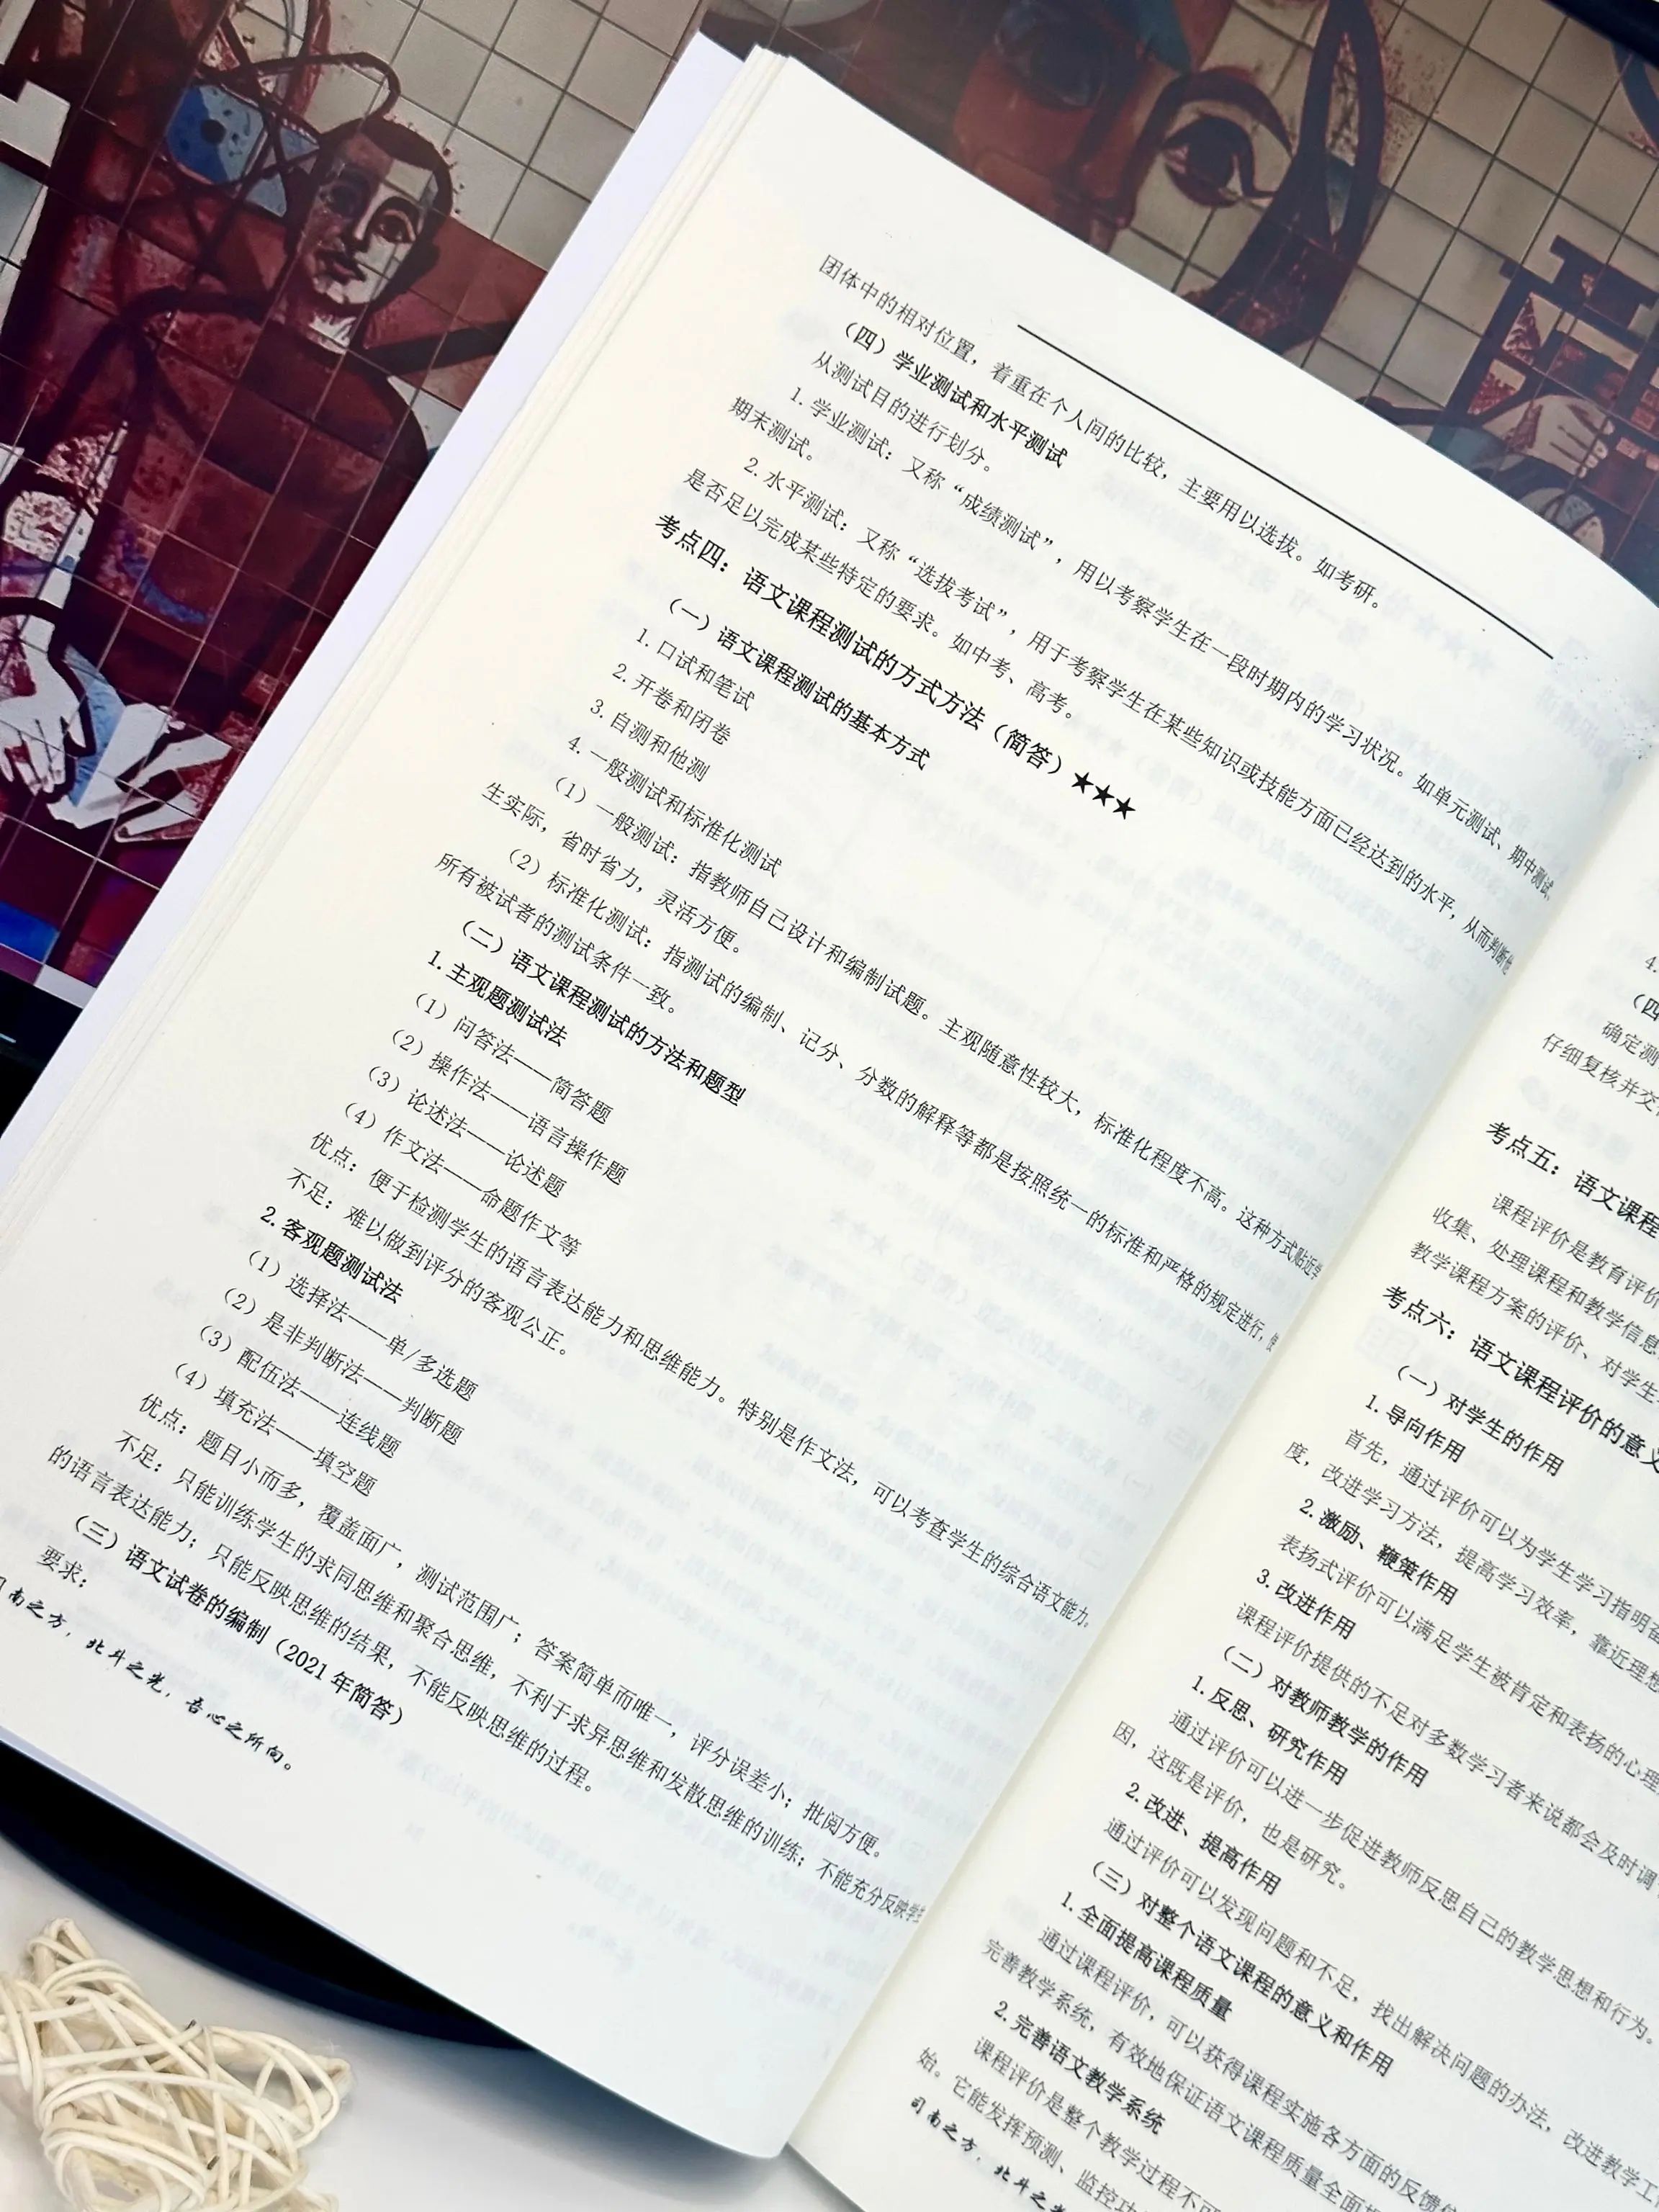 团体中的相对位置，着重在个人间的比较，主要用以选拔。如考研。
（四）学业测试和水平测试
从测试目的进行划分。
1. 学业测试：又称“成绩测试”，用以考察学生在一段时期内的学习状况。如单元测试、期中测试、
期末测试。
2. 水平测试：又称“选拔考试”，用于考察学生在某些知识或技能方面已经达到的水平，从而判断他
是否足以完成某些特定的要求。如中考、高考。
考点四：语文课程测试的方式方法（简答）★★★
（一）语文课程测试的基本方式
1. 口试和笔试
2. 开卷和闭卷
3. 自测和他测
4. 一般测试和标准化测试
（1）一般测试：指教师自己设计和编制试题。主观随意性较大，标准化程度不高。这种方式贴近学
生实际，省时省力，灵活方便。
（2）标准化测试：指测试的编制、记分、分数的解释等都是按照统一的标准和严格的规定进行，使
所有被试者的测试条件一致。
（二）语文课程测试的方法和题型
1. 主观题测试法
（1）问答法——简答题
（2）操作法——语言操作题
（3）论述法——论述题
（4）作文法——命题作文等
优点：便于检测学生的语言表达能力和思维能力。特别是作文法，可以考查学生的综合语文能力。
不足：难以做到评分的客观公正。
2. 客观题测试法
（1）选择法——单/多选题
（2）是非判断法——判断题
（3）配伍法——连线题
（4）填充法——填空题
优点：题目小而多，覆盖面广，测试范围广；答案简单而唯一，评分误差小；批阅方便。
不足：只能训练学生的求同思维和聚合思维，不利于求异思维和发散思维的训练；不能充分反映学生
的语言表达能力；只能反映思维的结果，不能反映思维的过程。
（三）语文试卷的编制（2021 年简答）
要求：
司南之方，北斗之光，吾心之所向。
4.
（四
确定测
仔细复核并交
考点五：语文课程
课程评价是教育评价
收集、处理课程和教学信息
教学课程方案的评价、对学生
考点六：语文课程评价的意义
（一）对学生的作用
1. 导向作用
首先，通过评价可以为学生学习指明
度，改进学习方法，提高学习效率，靠近理想
2. 激励、鞭策作用
表扬式评价可以满足学生被肯定和表扬的心理
3. 改进作用
课程评价提供的不足对多数学习者来说都会及时调
（二）对教师教学的作用
1. 反思、研究作用
通过评价可以进一步促进教师反思自己的教学思想和行为。
因，这既是评价，也是研究。
2. 改进、提高作用
通过评价可以发现问题和不足，找出解决问题的办法，改进教学工
（三）对整个语文课程的意义和作用
1. 全面提高课程质量
通过课程评价，可以获得课程实施各方面的反馈信
完善教学系统，有效地保证语文课程质量全面
2. 完善语文教学系统
课程评价是整个教学过程不可
始。它能发挥预测、监控功
司南之方，北斗之光